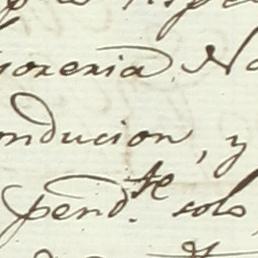 soreria. No
onducion, y
pend.te solo